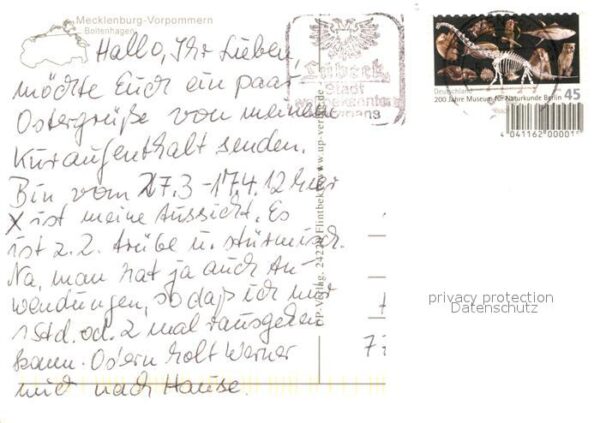 Mecklenburg-Vorpommern
Boltenhagen
Hallo, Ihr Lieben,
möchte Euch ein paar
Ostergrüße von meinem
Kuraufenthalt senden.
Bin vom 27.3 - 17.4.12 hier
X ist meine Aussicht. Es
ist z. Z. trübe u. stürmisch.
Na, man hat ja auch An-
wendungen, so daß ich nur
1 Std. od. 2 mal rausgehen
kann. Ostern holt Werner
mich nach Hause.
Lübeck
Stadt
UP-Verlag, 24220 Flintbek, www.up-verlag.de
Deutschland
200 Jahre Museum für Naturkunde Berlin
45
4 041162 00001
privacy protection
Datenschutz